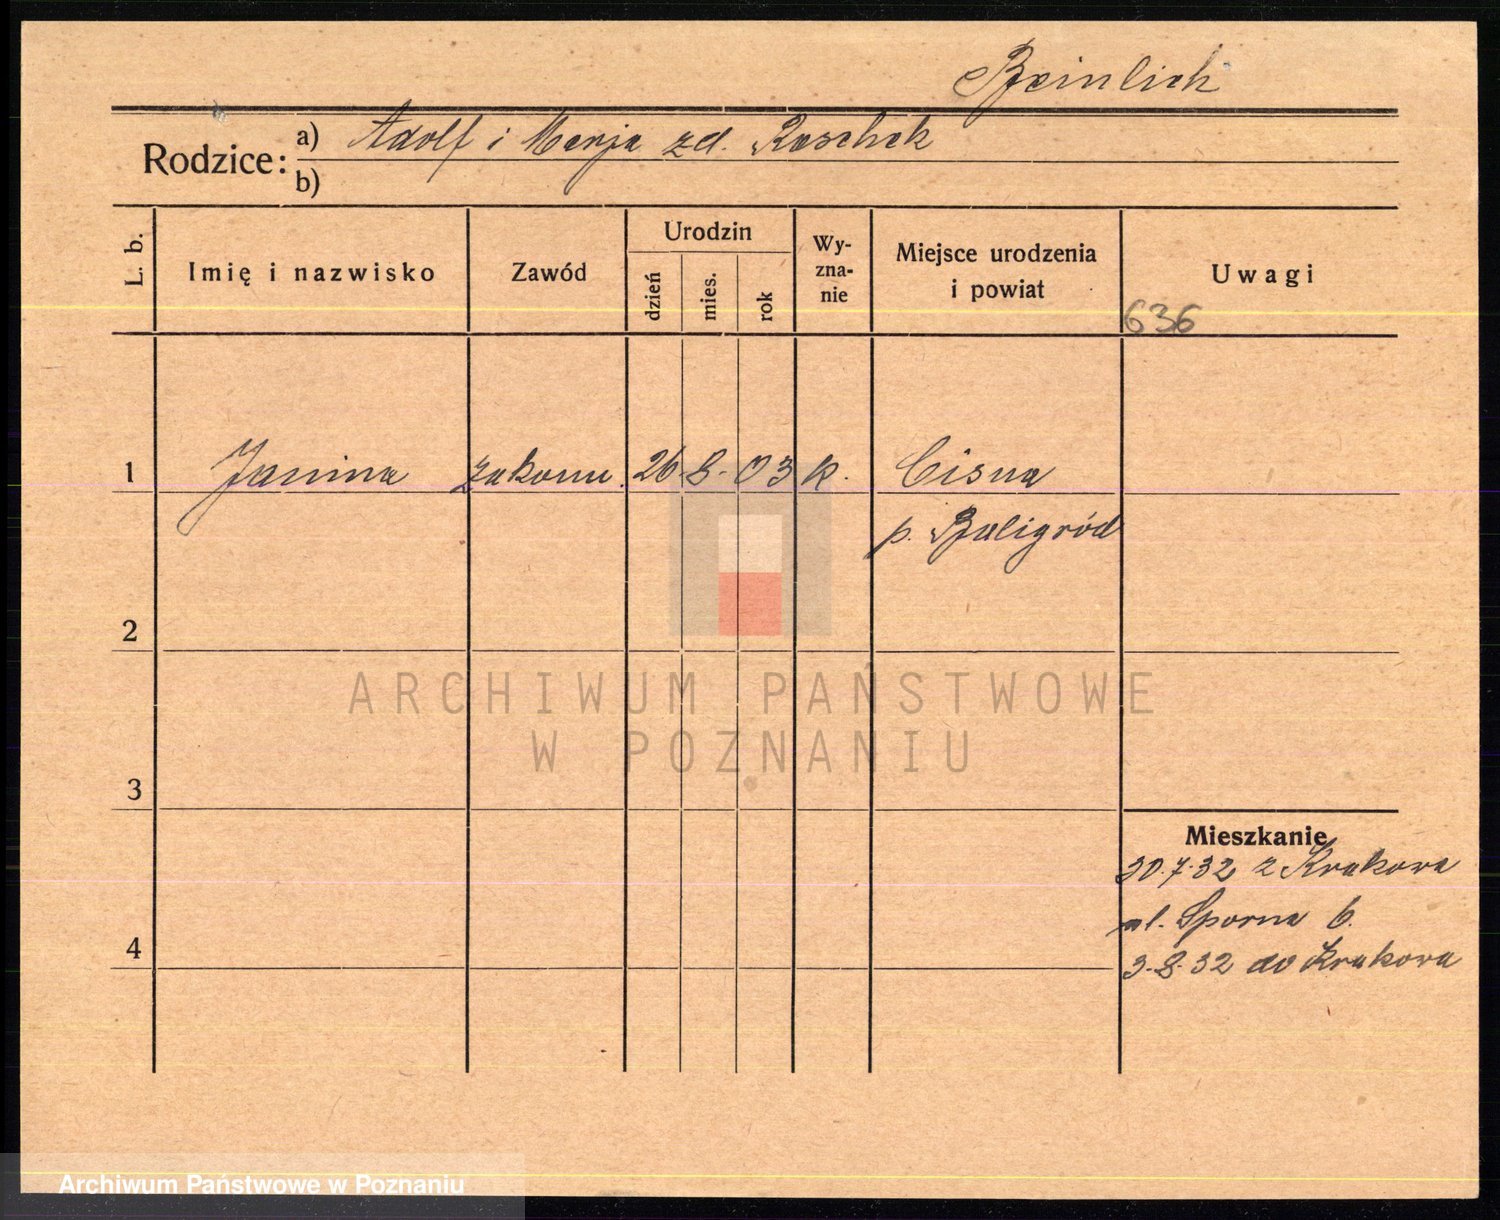 Beinlich
Rodzice: a) Adolf i Marja zd. Raschek
b)
L. b.
Imię i nazwisko
Zawód
Urodzin
dzień
mies.
rok
Wy-
zna-
nie
Miejsce urodzenia
i powiat
Uwagi
636
1 Janina zakonn. 26-8-03 k. Cisna
p. Baligród
2
ARCHIWUM PAŃSTWOWE
W POZNANIU
3
Mieszkanie
30.7.32 z Krakowa
ul. Sporna 6.
4
3.8.32 do Krakowa
Archiwum Państwowe w Poznaniu